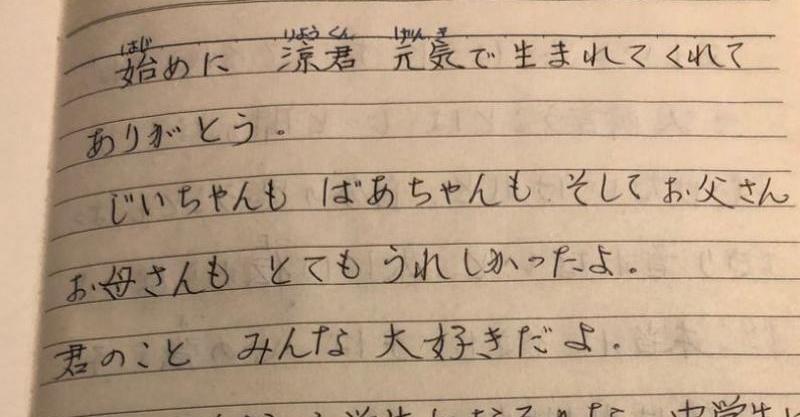 はじ りょうくん げんき
始めに 涼君 元気で生まれてくれて
ありがとう。
じいちゃんも ばあちゃんも そして お父さん
お母さんも とても うれしかったよ。
君のこと みんな 大好きだよ。
中学生